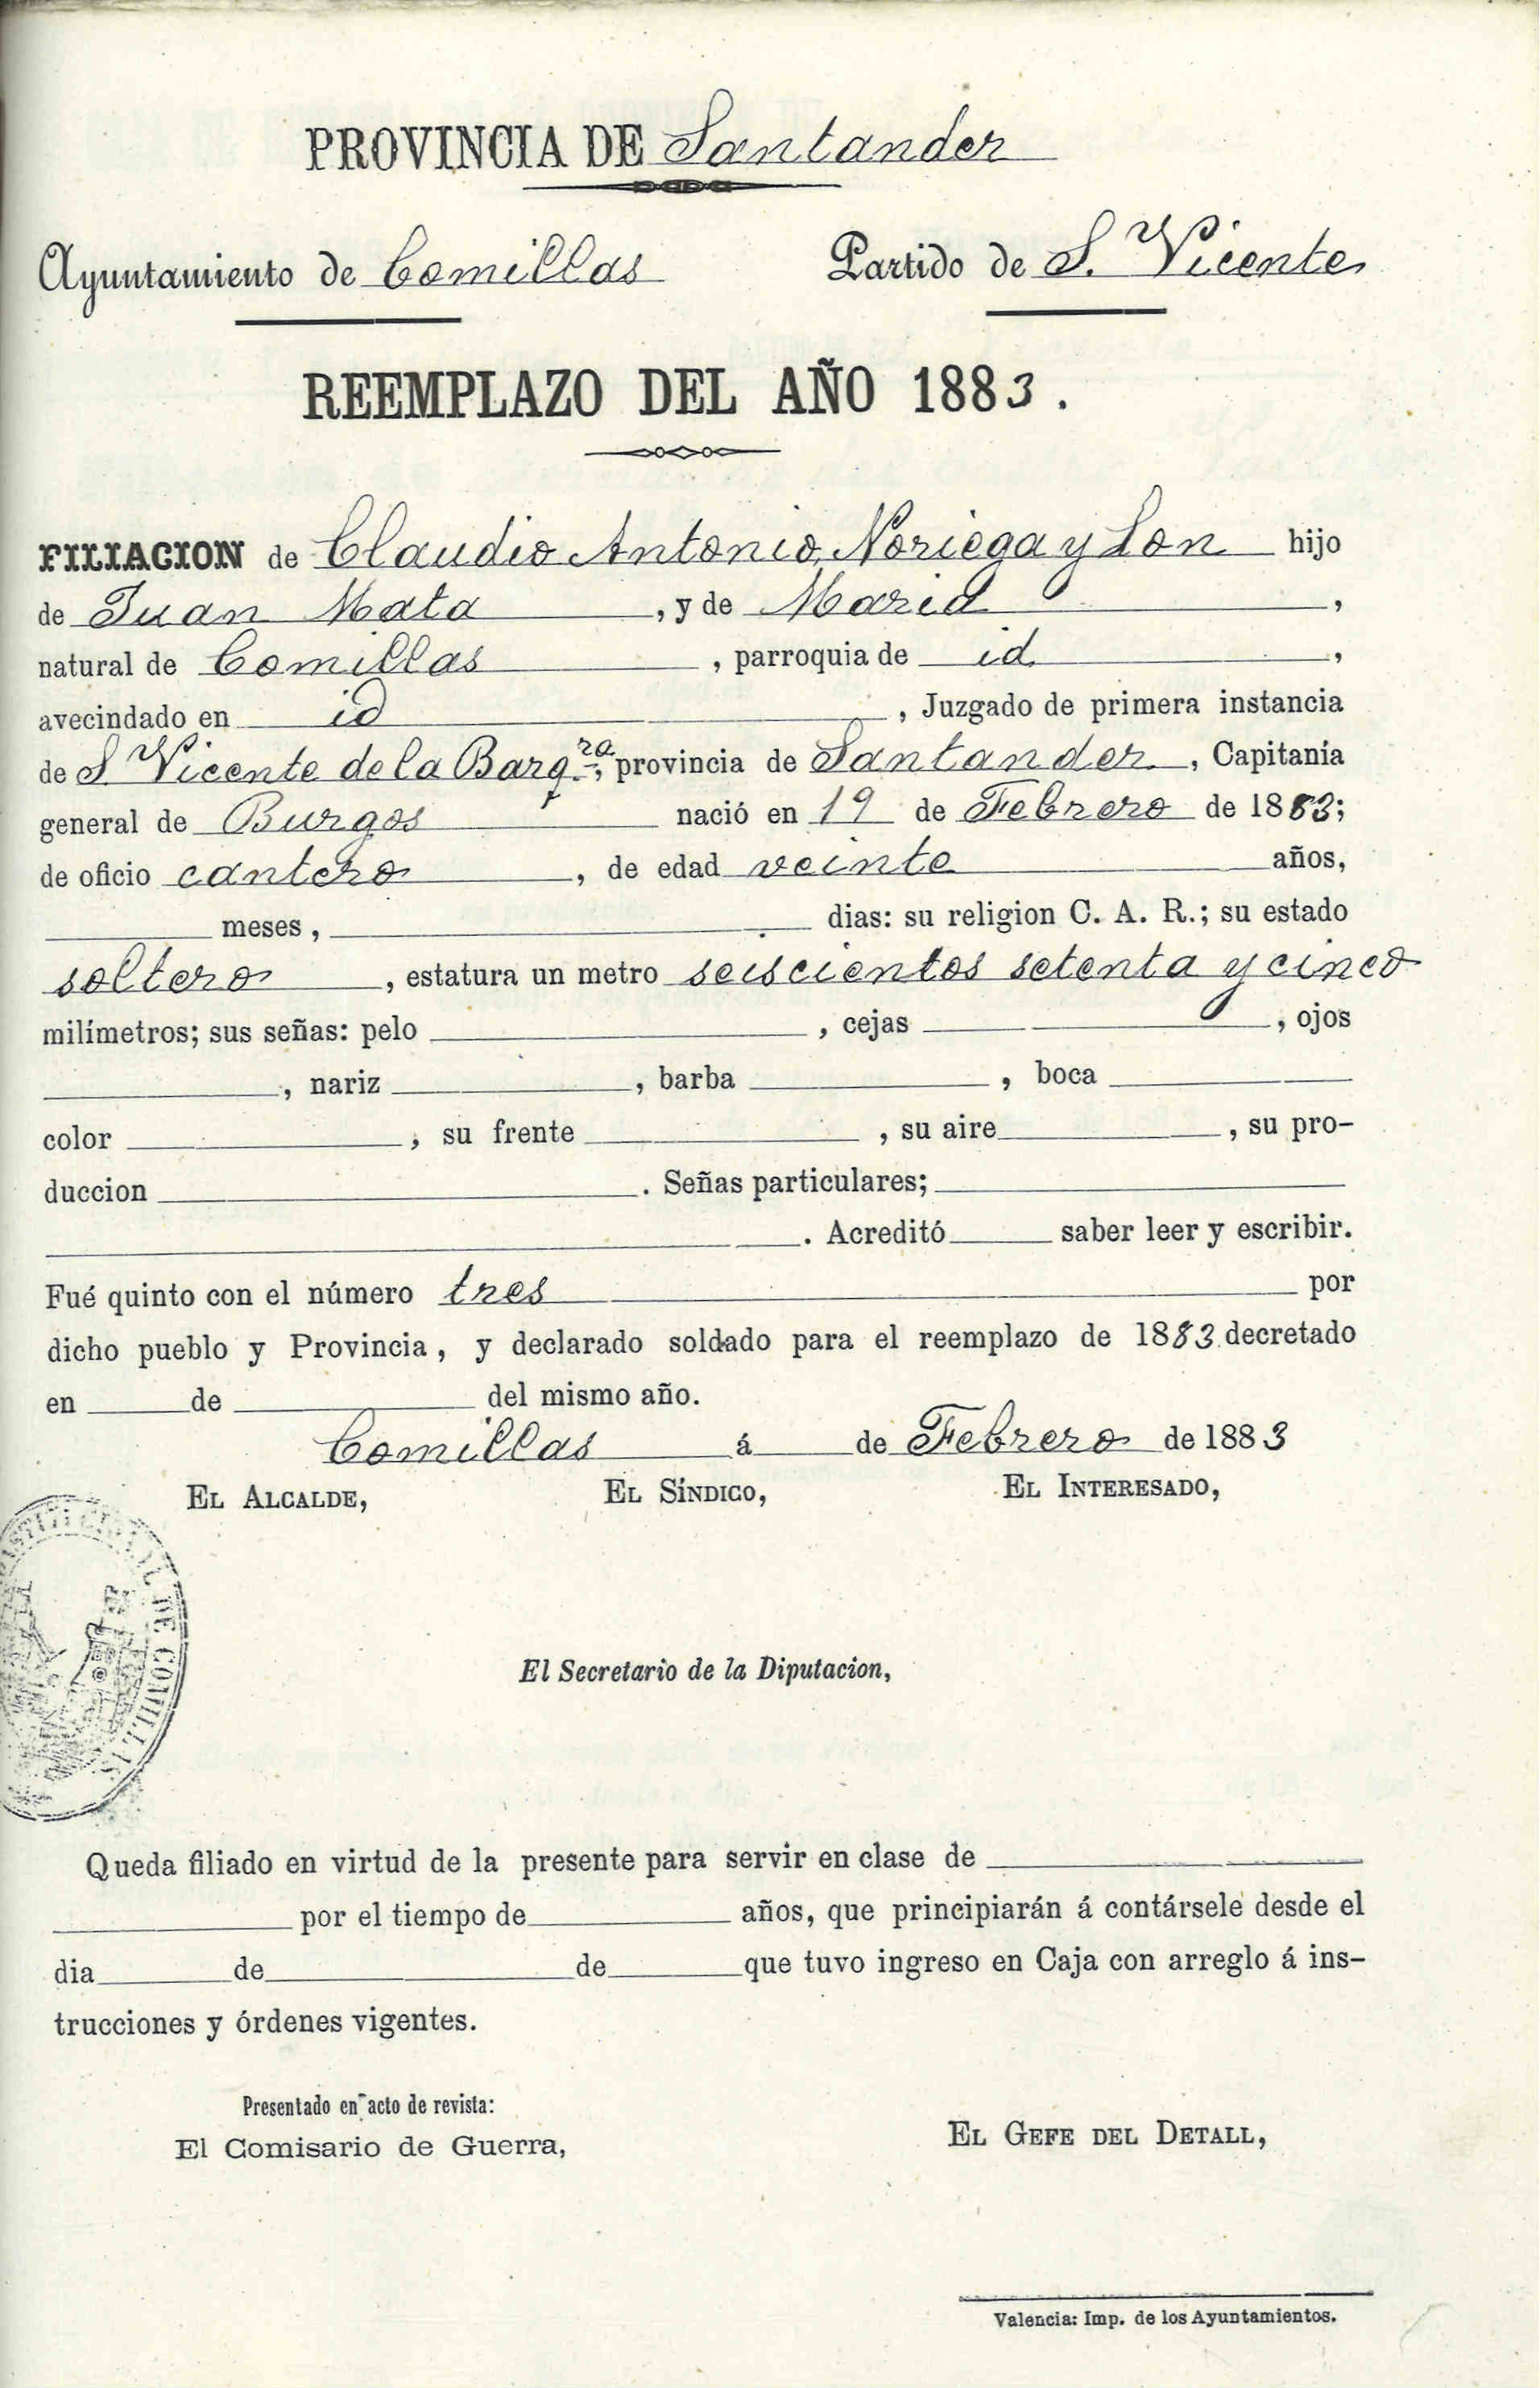 PROVINCIA DE Santander
Ayuntamiento de Comillas Partido de S. Vicente
REEMPLAZO DEL AÑO 1883.
FILIACION de Claudio Antonio Noriega y Lon hijo
de Juan Mata , y de Maria ,
natural de Comillas , parroquia de id ,
avecindado en id , Juzgado de primera instancia
de S Vicente de la Barq.ra, provincia de Santander , Capitanía
general de Burgos nació en 19 de Febrero de 1883;
de oficio cantero , de edad veinte años,
meses , dias: su religion C. A. R.; su estado
soltero , estatura un metro seiscientos setenta y cinco
milímetros; sus señas: pelo , cejas , ojos
, nariz , barba , boca
color , su frente , su aire , su pro-
duccion . Señas particulares;
. Acreditó saber leer y escribir.
Fué quinto con el número tres por
dicho pueblo y Provincia, y declarado soldado para el reemplazo de 1883 decretado
en de del mismo año.
Comillas á de Febrero de 1883
EL ALCALDE, EL SÍNDICO, EL INTERESADO,
DE COMILLAS
El Secretario de la Diputacion,
Queda filiado en virtud de la presente para servir en clase de
por el tiempo de años, que principiarán á contársele desde el
dia de de que tuvo ingreso en Caja con arreglo á ins-
trucciones y órdenes vigentes.
Presentado en acto de revista:
El Comisario de Guerra, EL GEFE DEL DETALL,
Valencia: Imp. de los Ayuntamientos.